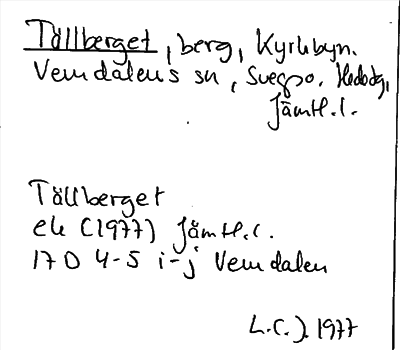 Tällberget, berg, Kyrkbyn.
Vemdalens sn, Svegso. Hededg,
Jämtl.l.
Tällberget
ek (1977) Jämtl.l.
17 D 4-5 i-j Vemdalen
L.C.J. 1977